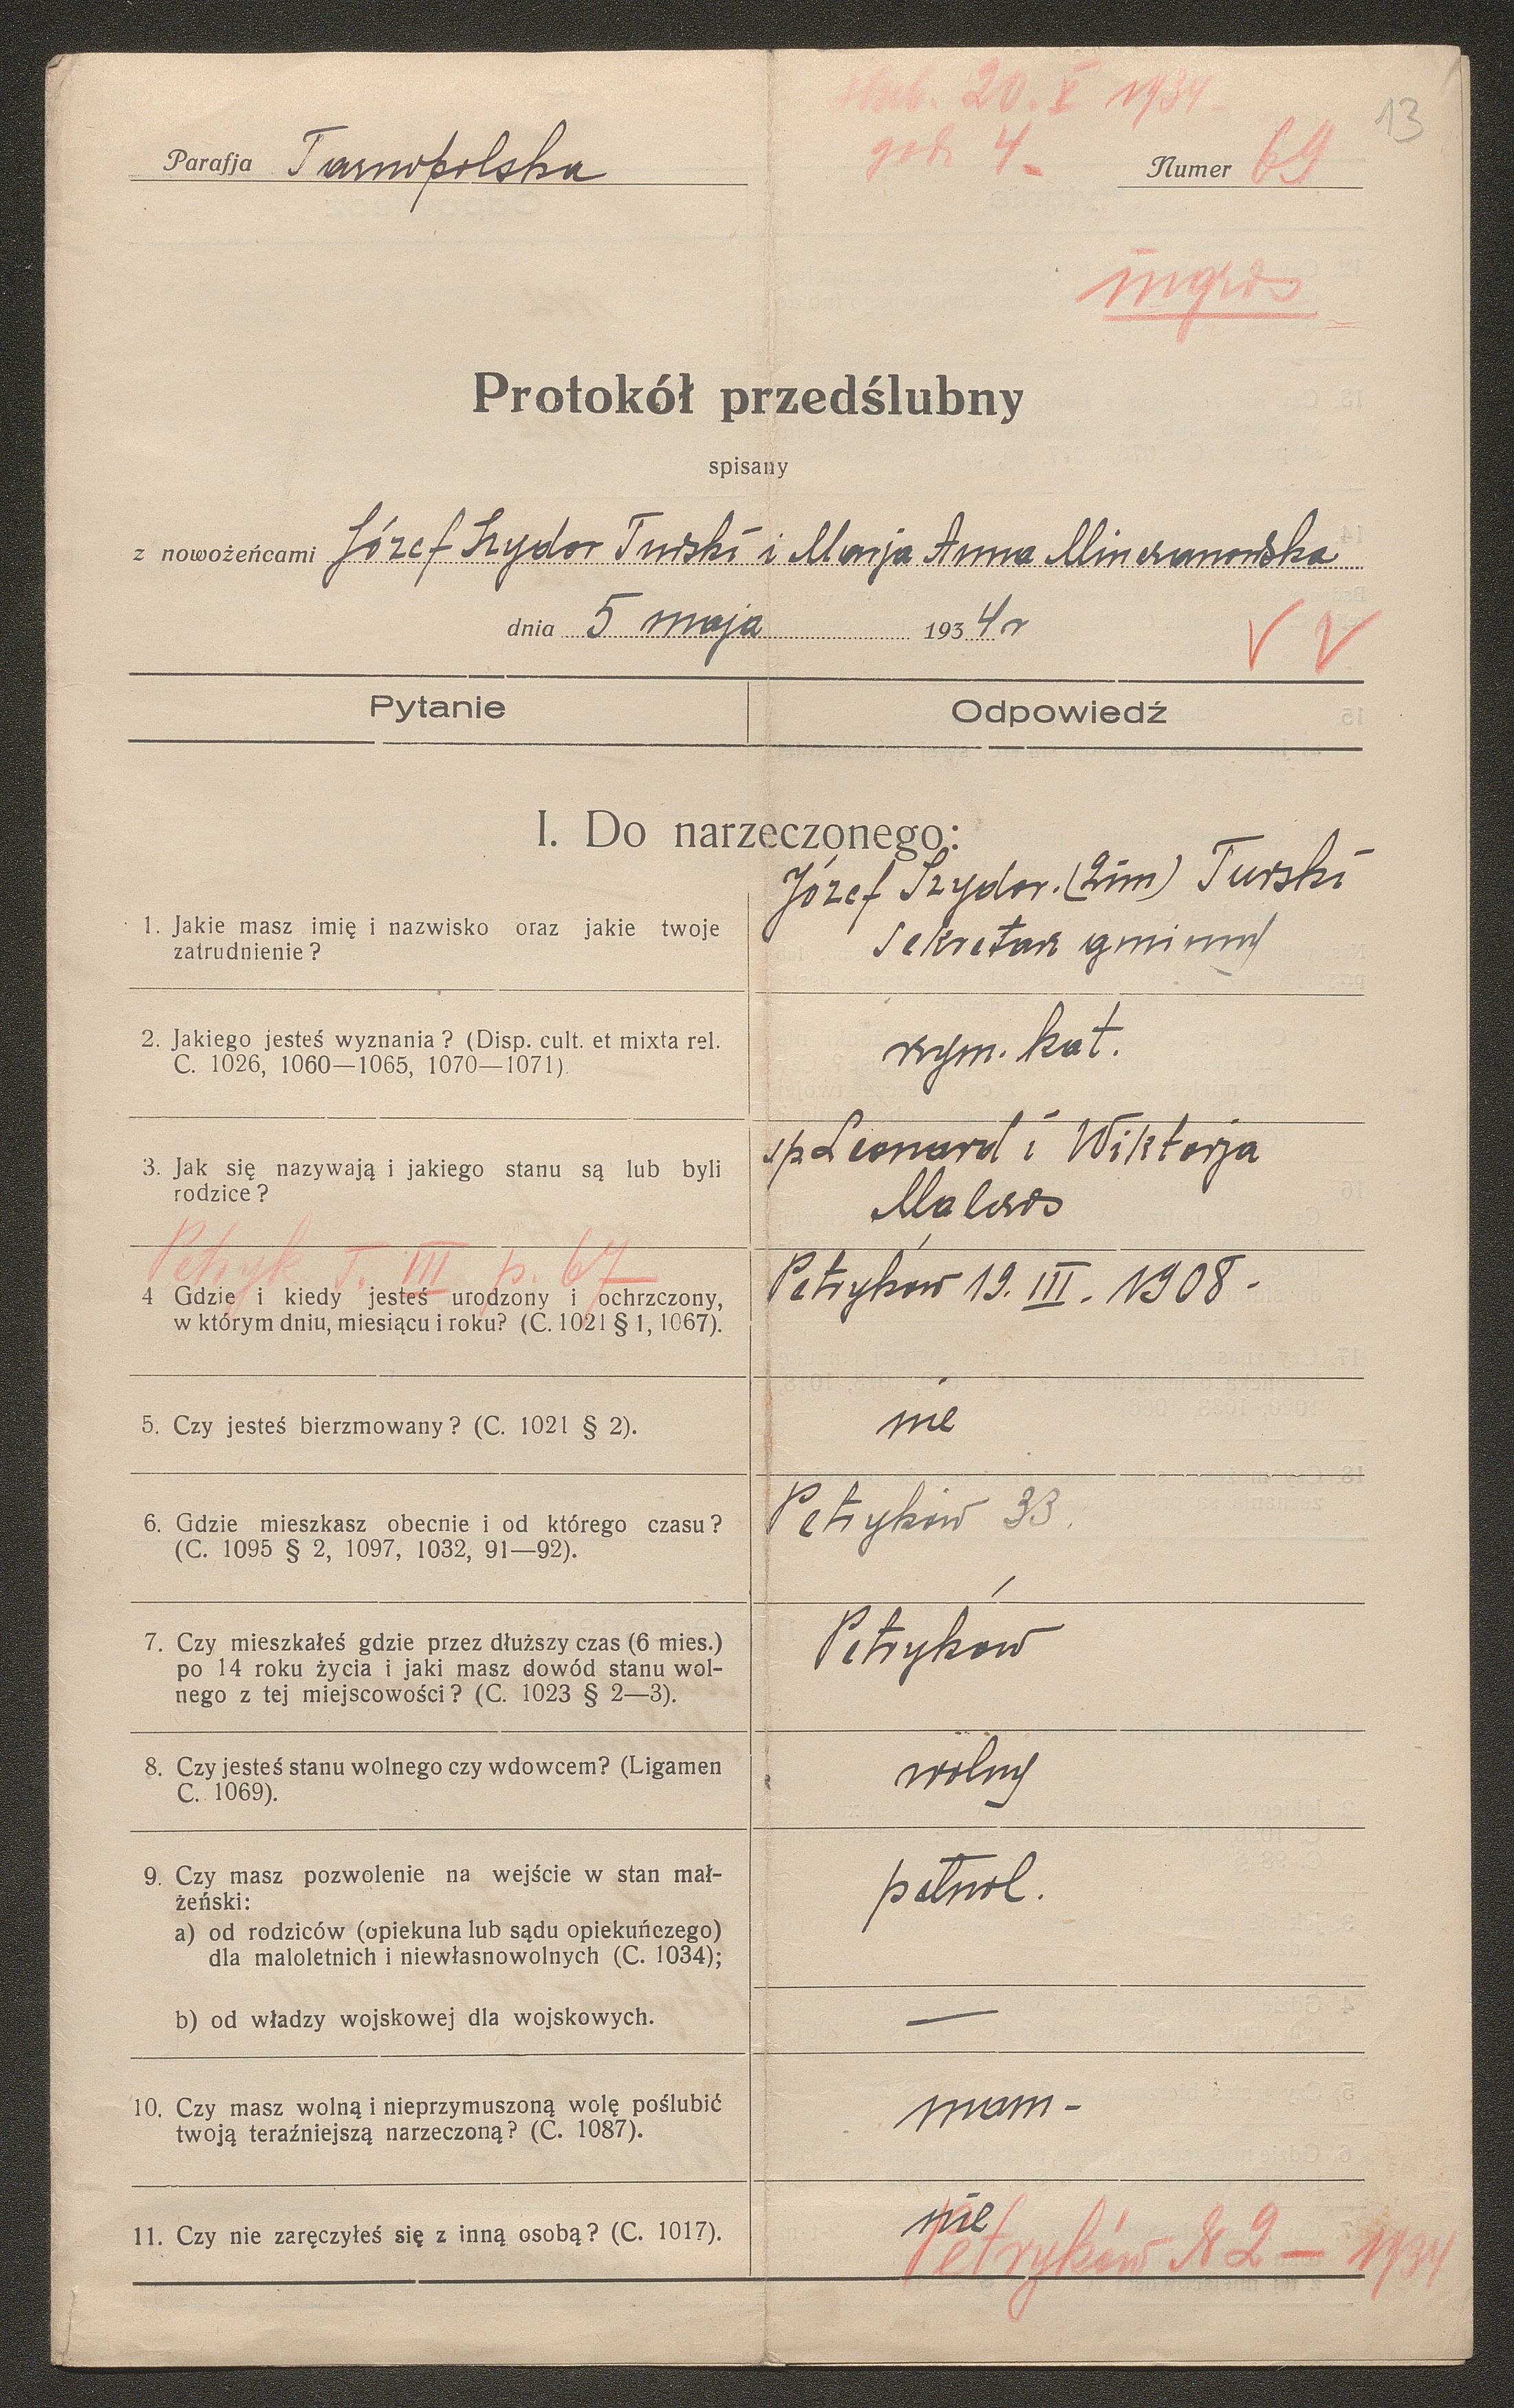 20. V 1934
13
Parafja Tarnopolska
godz 4
Numer 69
ingros
Protokół przedślubny
spisany
z nowożeńcami Józef Izydor Turski i Marja Anna
dnia 5 maja 1934 r
Pytanie
Odpowiedź
I. Do narzeczonego:
Józef Izydor (2im) Turski
1. Jakie masz imię i nazwisko oraz jakie twoje
zatrudnienie?
sekretarz gminny
2. Jakiego jesteś wyznania? (Disp. cult. et mixta rel.
C. 1026, 1060—1065, 1070—1071).
rzym. kat.
3. Jak się nazywają i jakiego stanu są lub byli
rodzice?
śp Leonard i Wiktorja
Petryk T. III p. 67
4 Gdzie i kiedy jesteś urodzony i ochrzczony,
w którym dniu, miesiącu i roku? (C. 1021 § 1, 1067).
Petryków 19. III. 1908 -
5. Czy jesteś bierzmowany? (C. 1021 § 2).
nie
6. Gdzie mieszkasz obecnie i od którego czasu?
(C. 1095 § 2, 1097, 1032, 91—92).
Petryków 33.
7. Czy mieszkałeś gdzie przez dłuższy czas (6 mies.)
po 14 roku życia i jaki masz dowód stanu wol-
nego z tej miejscowości? (C. 1023 § 2—3).
Petryków
8. Czy jesteś stanu wolnego czy wdowcem? (Ligamen
C. 1069).
wolny
9. Czy masz pozwolenie na wejście w stan mał-
żeński:
a) od rodziców (opiekuna lub sądu opiekuńczego)
dla maloletnich i niewłasnowolnych (C. 1034);
pełnol.
b) od władzy wojskowej dla wojskowych.
—
10. Czy masz wolną i nieprzymuszoną wolę poślubić
twoją teraźniejszą narzeczoną? (C. 1087).
mam -
11. Czy nie zaręczyłeś się z inną osobą? (C. 1017).
nie
Petryków N 2 — 1934